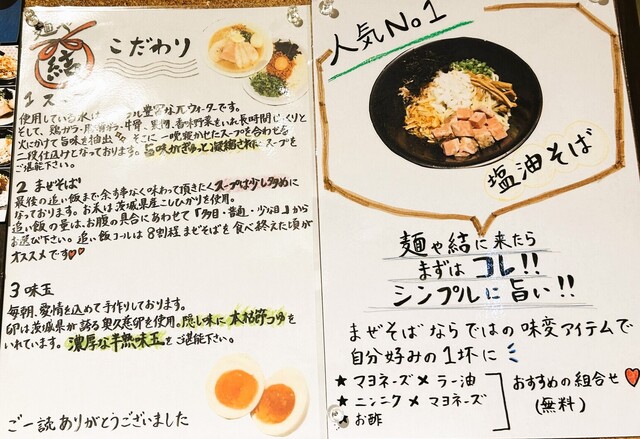 麺や
結
こだわり
1 ス
使用している水は 豊富なπウォーターです。
そして、鶏ガラ・豚骨・牛骨、果物、香味野菜をいれ長時間じっくりと
火にかけて旨味を抽出 そこに一晩寝かせたスープを合わせる
二段仕込けとなっております。旨味がぎゅっと凝縮されたスープを
ご堪能下さい。
2 まぜそば
最後の追い飯まで余す事なく味わって頂きたくスープは少し多めに
なっております。お米は茨城県産こしひかりを使用。
追い飯の量は、お腹の具合にあわせて『多目・普通・少な目』から
お選び下さい。追い飯コールは8割程まぜそばを食べ終えた頃が
オススメです
3 味玉
毎朝、愛情を込めて手作りしております。
卵は茨城県が誇る奥久慈卵を使用。隠し味に本枯節つゆを
いれています。濃厚な半熟味玉をご堪能下さい。
ご一読ありがとうございました
人気No1
塩油そば
麺や結に来たら
まずはコレ!!
シンプルに旨い!!
まぜそばならではの味変アイテムで
自分好みの1杯に
★ マヨネーズ×ラー油
★ ニンニク×マヨネーズ
お酢
おすすめの組合せ
(無料)